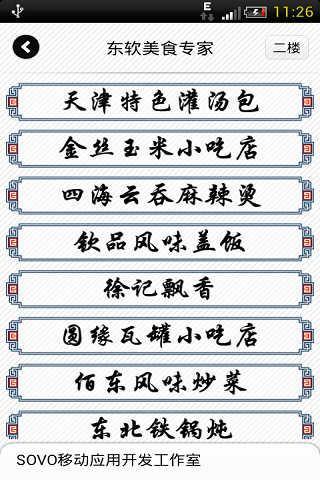 E
11:26
东软美食专家
二楼
天津特色灌汤包
金丝玉米小吃店
四海云吞麻辣烫
钦品风味盖饭
徐记飘香
圆缘瓦罐小吃店
佰东风味炒菜
东北铁锅炖
SOVO移动应用开发工作室